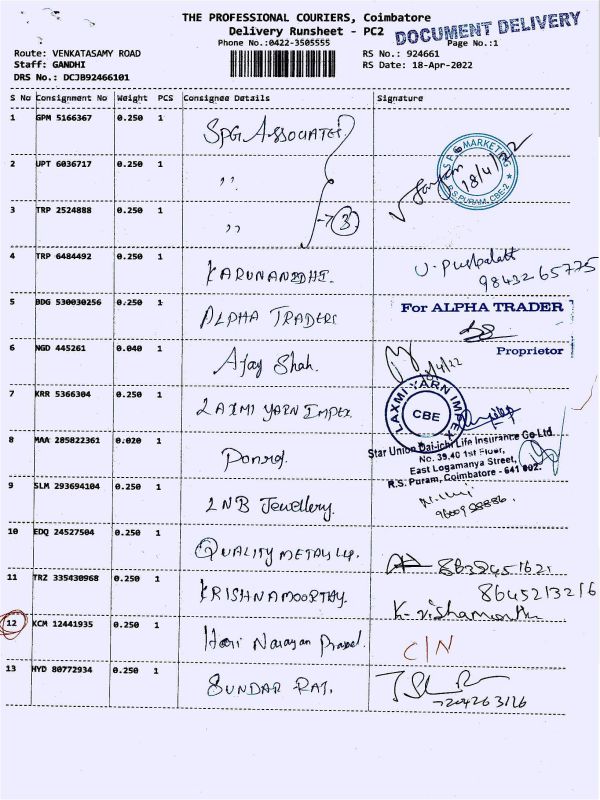 THE PROFESSIONAL COURIERS, Coimbatore
Delivery Runsheet - PC2
DOCUMENT DELIVERY
Phone No.:0422-3505555
Page No.:1
Route: VENKATASAMY ROAD
RS No.: 924661
Staff: GANDHI
RS Date: 18-Apr-2022
DRS No.: DCJB92466101
S No Consignment No Weight PCS Consignee Details Signature
1 GPM 5166367 0.250 1 SPG ASSOCIATES
2 UPT 6036717 0.250 1 ,,
SPG MARKETING
R.S.PURAM, CBE-2
18/4/22
3 TRP 2524888 0.250 1 ,, → 3
4 TRP 6484492 0.250 1 KARUNANIDHI.
98432 65775
5 BDG 530030256 0.250 1 ALPHA TRADERS
For ALPHA TRADER
Proprietor
6 NGD 445261 0.040 1 Ajay Shah.
7 KRR 5366304 0.250 1 LAXMI YARN IMPEX.
LAXMI YARN IMPEX
CBE
8 MAA 285822361 0.020 1
Star Union Dai-ichi Life Insurance Co Ltd
No. 39,40 1st Floor,
East Logamanya Street,
R.S. Puram, Coimbatore - 641 002.
9 SLM 293694104 0.250 1 LNB Jewellery.
10 EDQ 24527504 0.250 1 QUALITY
11 TRZ 335430968 0.250 1 KRISHNAMOORTHY.
8645213216
12 KCM 12441935 0.250 1 Hari Narayan
C/N
13 HYD 80772934 0.250 1 SUNDAR RAJ.